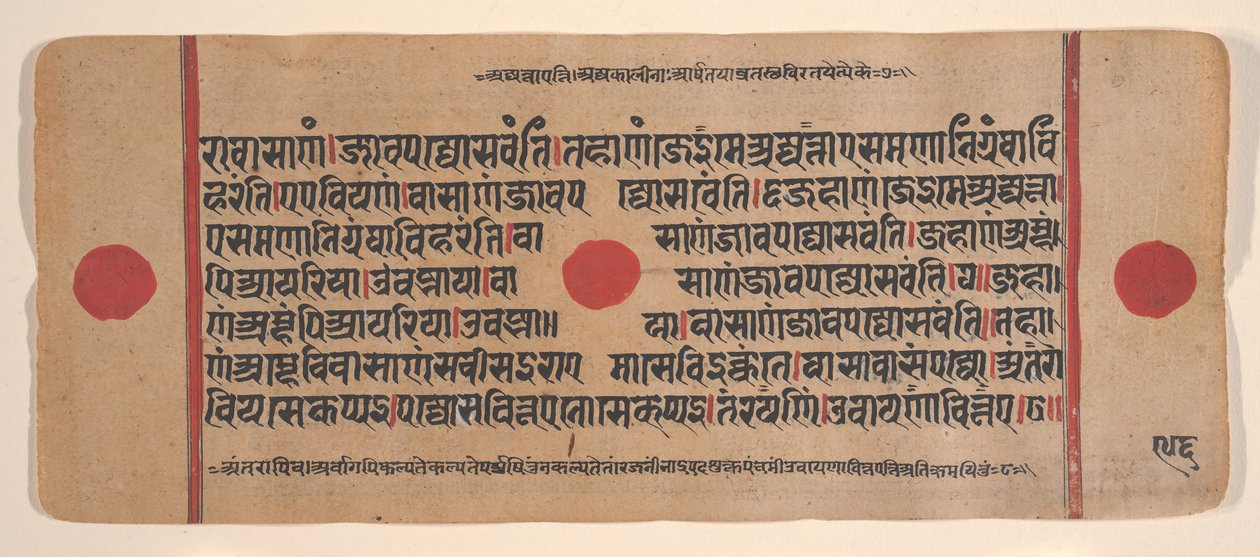 =अज्जत्ताएत्ति।अद्यकालीनाः आर्यतया व्रतस्थविरतयेत्येके=७=॥
रा वासाणं।जाव पज्जोसवंति।तहा णं।जे इमे अज्जत्ताए समणा निग्गंथा वि
हरंति।एए वि य णं।वासाणं जाव प ज्जोसवंति।६ जहा णं।जे इमे अज्जत्ता।
ए समणा निग्गंथा विहरंति।वा साणं जाव पज्जोसवंति।जहा णं अम्हं।
पि आयरिया।उवज्झाया।वा साणं जाव पज्जोसवंति।७॥जहा।
णं अम्हं पि आयरिया।उवज्झा॥ या।वासाणं जाव पज्जोसवंति॥तहा॥
णं अम्हे वि वासाणं सवीसइराए मासे विइक्कंते।वासावासं पज्जोसमो।अंतरा
वि य से कप्पइ।पज्जोसवित्तए नो से कप्पइ।तं रयणिं।उवायणावित्तए।८॥
=अंतरापि च।अर्वागपि कल्पते कल्पते पर्युषितुं न कल्पते तां रजनीं भाद्रपदशुक्लपंचमीं उवायणावित्तएत्ति अतिक्रमयितुं=८=॥